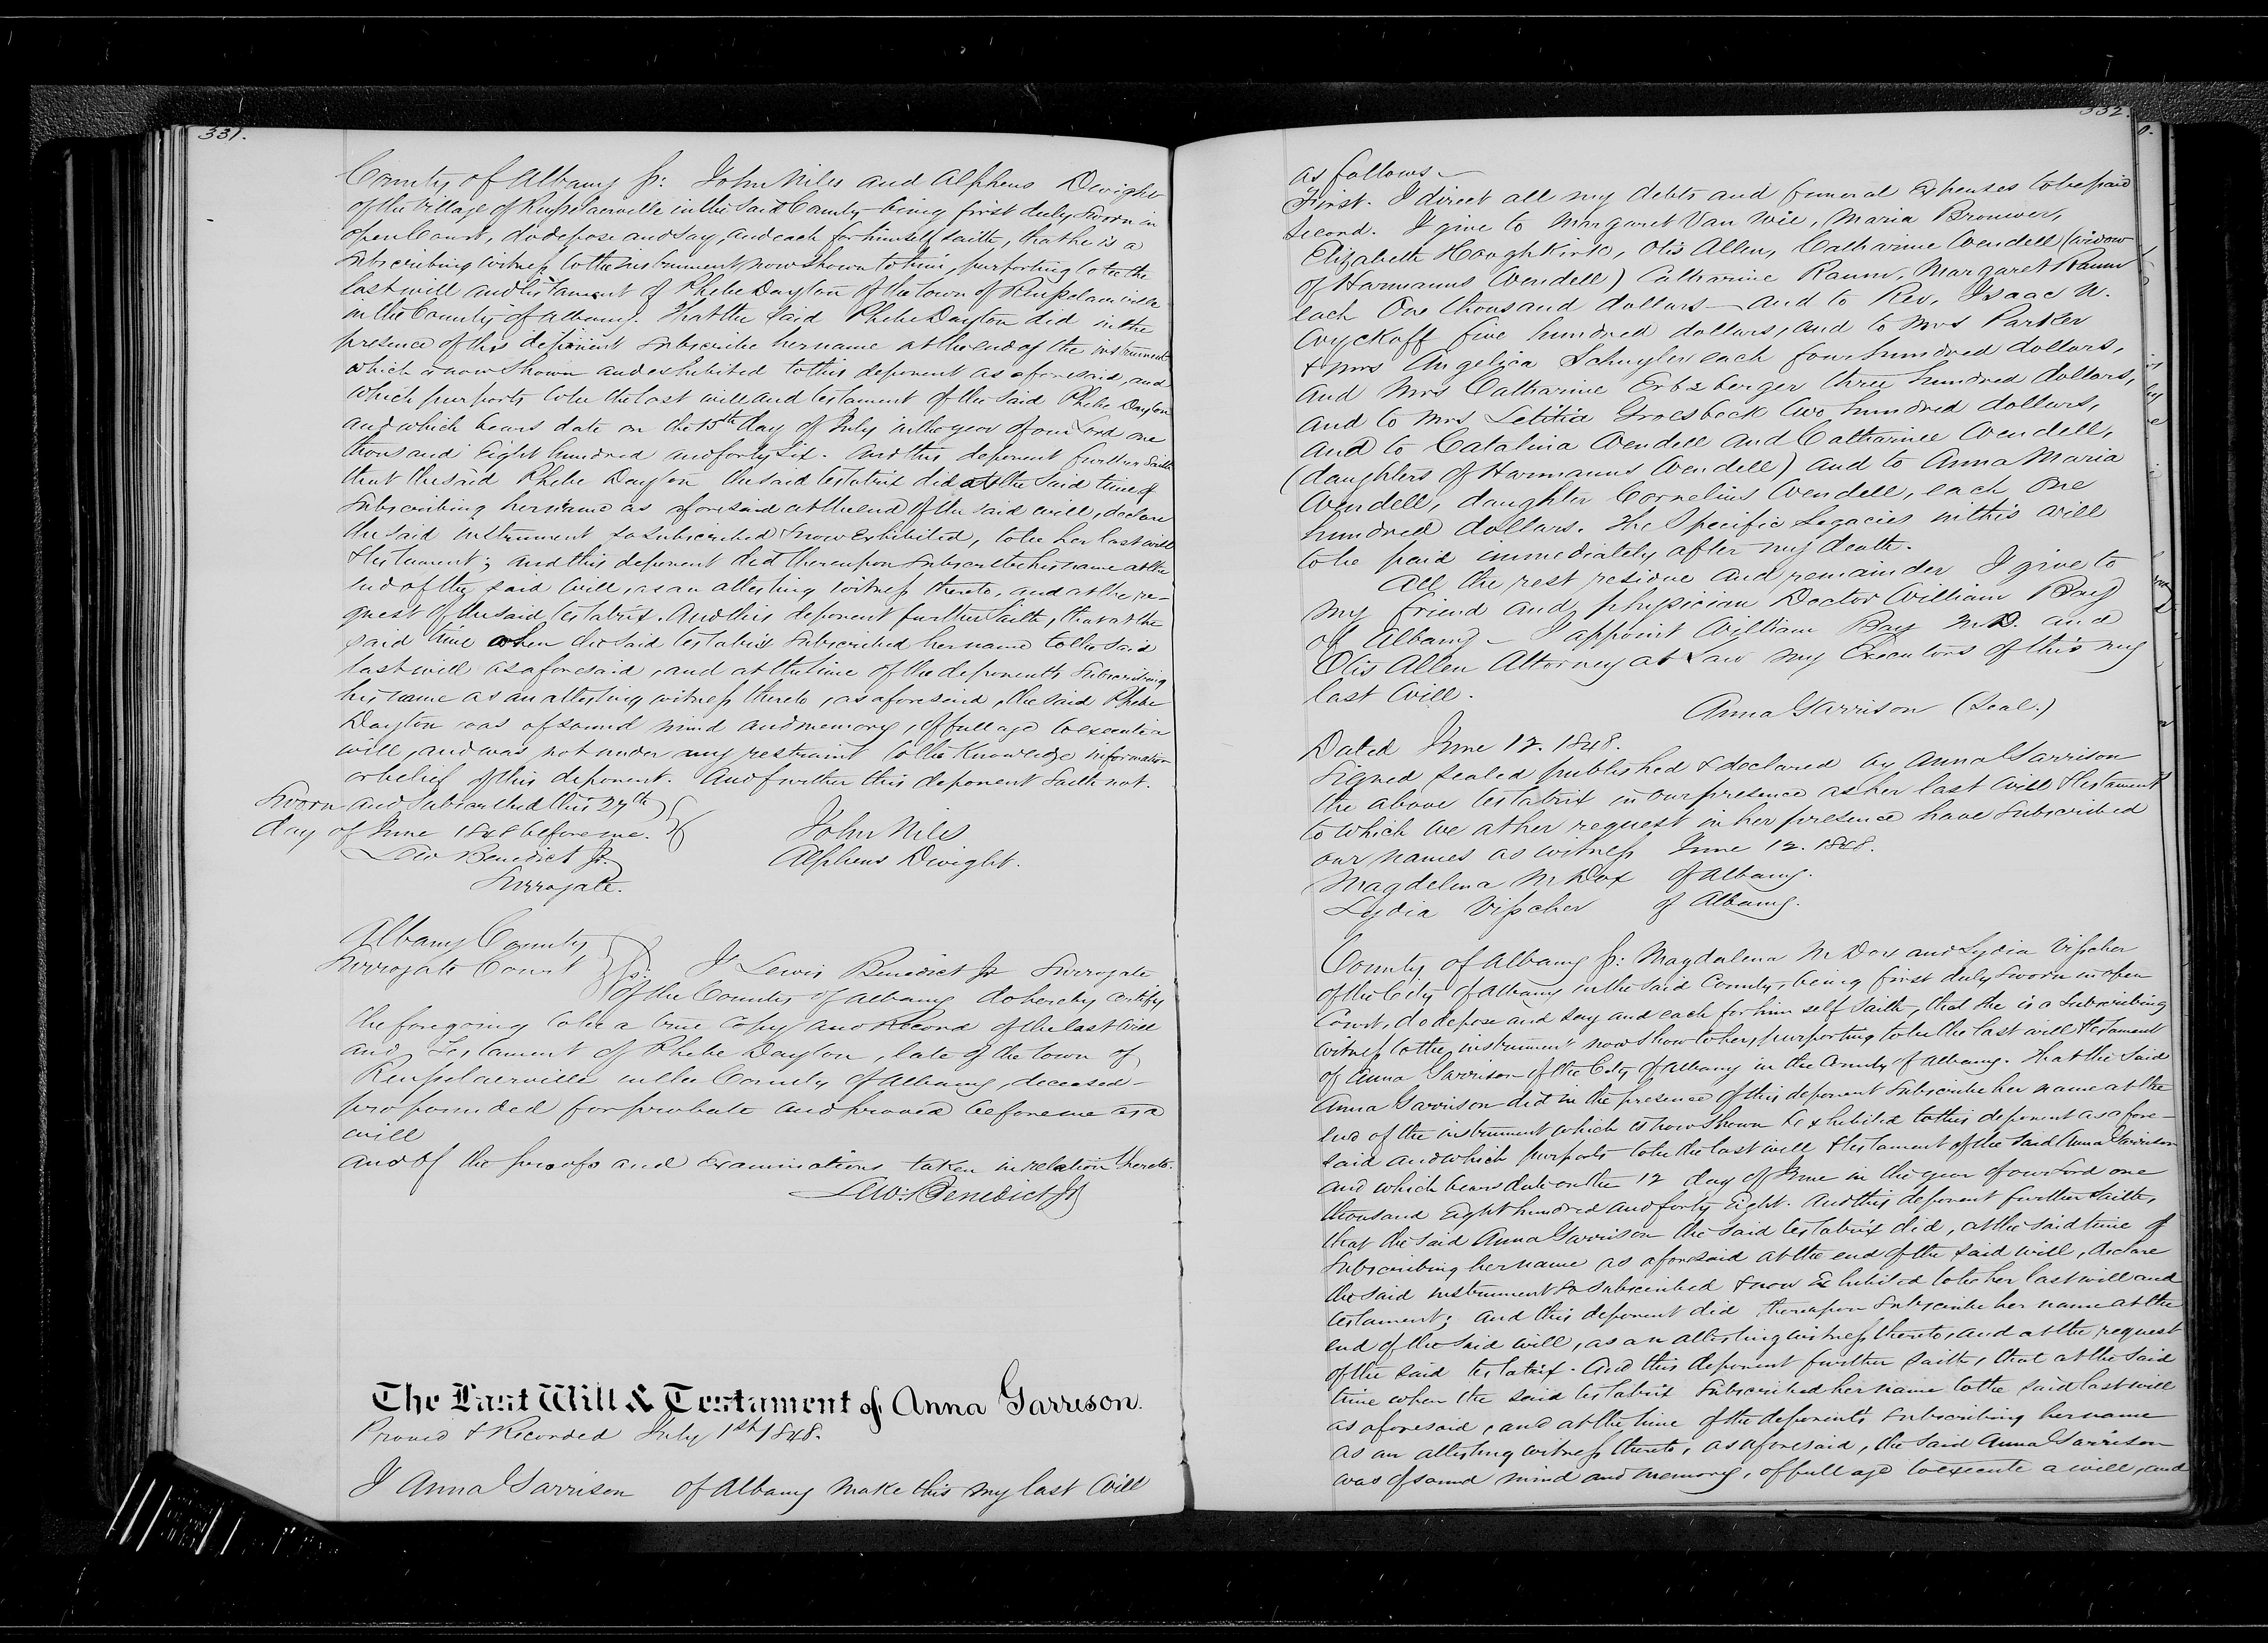 331.
County of Albany ss: John Niles and Alpheus Dwight
of the Village of Rensselaerville in the said County being first duly sworn in
open Court, do depose and say, and each for himself saith, that he is a
subscribing witness to the instrument now shown to him, purporting to be the
last will and testament of Phebe Dayton of the town of Rensselaerville
in the County of Albany. That the said Phebe Dayton did in the
presence of this deponent subscribe her name at the end of the instrument
which is now shown and exhibited to this deponent as aforesaid, and
which purports to be the last will and testament of the said Phebe Dayton
and which bears date on the 15th day of July in the year of our Lord one
thousand Eight hundred and forty six. And this deponent further saith
that the said Phebe Dayton the said testatrix did at the said time of
subscribing her name as aforesaid at the end of the said will, declare
the said instrument so subscribed & now exhibited, to be her last will
& testament; and this deponent did thereupon subscribe his name at the
end of the said will, as an attesting witness thereto, and at the re-
quest of the said testatrix. And this deponent further saith, that at the
said time when the said testatrix subscribed her name to the said
last will as aforesaid, and at the time of the deponents subscribing
his name as an attesting witness thereto, as aforesaid, the said Phebe
Dayton was of sound mind and memory, of full age to execute a
will, and was not under any restraint to the knowledge information
or belief of this deponent. And further this deponent saith not.
Sworn and subscribed this 27th
day of June 1848 before me. John Niles
Lew Benedict Jr. Alpheus Dwight.
Surrogate.
Albany County
Surrogate Court ss: I Lewis Benedict Jr Surrogate
of the County of Albany do hereby certify
the foregoing to be a true copy and Record of the last will
and Testament of Phebe Dayton, late of the town of
Rensselaerville in the County of Albany, deceased-
propounded for probate and proved before me as a
will
and of the proofs and Examinations taken in relation thereto.
Lew: Benedict Jr
The Last Will & Testament of Anna Garrison.
Proved & Recorded July 1st 1848.
I Anna Garrison of Albany make this my last Will
332.
as follows-
First. I direct all my debts and funeral expenses to be paid
Second. I give to Margaret Van Wie, Maria Brouwer,
Elizabeth Houghkirk, Otis Allen, Catharine Wendell (widow
of Harmanus Wendell) Catharine Raum, Margaret Raum
each One thousand dollars- and to Rev. Isaac N.
Wyckoff five hundred dollars, and to Mrs Parker
& Mrs Angelica Schuyler each four hundred dollars,
and Mrs Catharine Ertzberger three hundred dollars,
and to Mrs Letitia Groesbeck two hundred dollars,
and to Catalina Wendell and Catharine Wendell,
(daughters of Harmanus Wendell) and to Anna Maria
Wendell, daughter Cornelius Wendell, each one
hundred dollars. The Specific Legacies in this will
to be paid immediately after my death.
All the rest residue and remainder I give to
my friend and physician Doctor William Bay
of Albany- I appoint William Bay M.D. and
Otis Allen Attorney at Law my Executors of this my
last Will.
Anna Garrison (Seal.)
Dated June 12. 1848.
Signed sealed published & declared by Anna Garrison
the above testatrix in our presence as her last will & testament
to which we at her request in her presence have subscribed
our names as witness June 12. 1848.
Magdelena M Dox of Albany.
Lydia Visscher of Albany.
County of Albany ss: Magdalena M Dox and Lydia Visscher
of the City of Albany in the said County, being first duly sworn in open
Court, do depose and say and each for him self saith, that she is a subscribing
witness to the instrument now show to her, purporting to be the last will & testament
of Anna Garrison of the City of Albany in the County of Albany. That the said
Anna Garrison did in the presence of this deponent subscribe her name at the
end of the instrument which is now shown & exhibited to this deponent as afore-
said and which purports to be the last will & testament of the said Anna Garrison
and which bears date on the 12 day of June in the year of our Lord one
thousand Eight hundred and forty Eight. And this deponent further saith,
that the said Anna Garrison the said testatrix did, at the said time of
subscribing her name as aforesaid at the end of the said will, declare
the said instrument so subscribed & now Exhibited to be her last will and
testament; and this deponent did thereupon subscribe her name at the
end of the said will, as an attesting witness thereto, and at the request
of the said testatrix. And this deponent further saith, that at the said
time when the said testatrix subscribed her name to the said last will
as aforesaid, and at the time of the deponents subscribing her name
as an attesting witness thereto, as aforesaid, the said Anna Garrison
was of sound mind and memory, of full age to execute a will, and